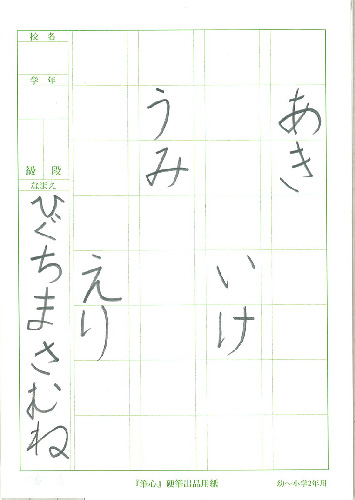 あき
いけ
うみ
えり
校名
学年
級 段
なまえ
ひぐちまさむね
『筆心』硬筆出品用紙
幼〜小学2年用